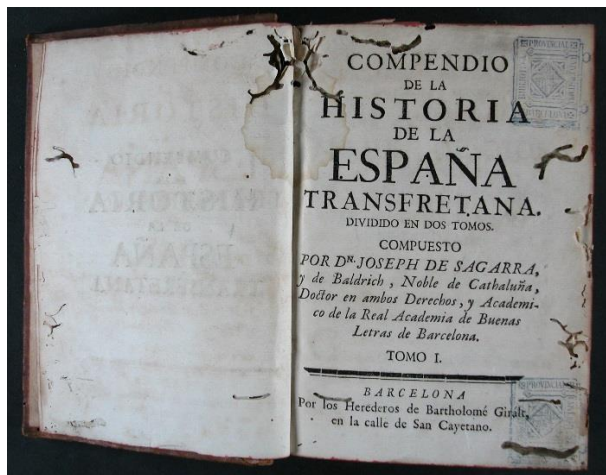 COMPENDIO
DE LA
HISTORIA
DE LA
ESPAÑA
TRANSFRETANA.
DIVIDIDO EN DOS TOMOS.
COMPUESTO
POR Dᴺ. JOSEPH DE SAGARRA,
y de Baldrich, Noble de Cathaluña,
Doctor en ambos Derechos, y Academi-
co de la Real Academia de Buenas
Letras de Barcelona.
TOMO I.
BARCELONA
Por los Herederos de Bartholomé Giralt,
en la calle de San Cayetano.